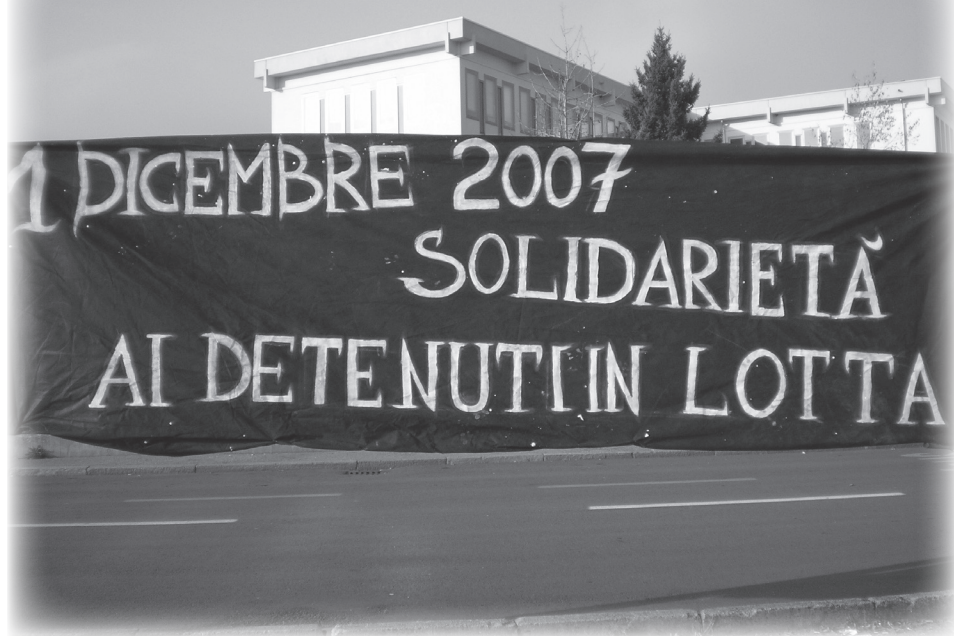 1 DICEMBRE 2007
SOLIDARIETĂ
AI DETENUTI IN LOTTA